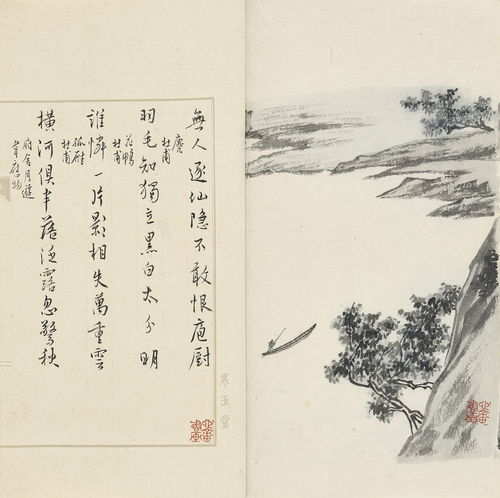 無人逐仙隐不敢恨庖厨
麂
杜甫
羽毛知獨立黑白太分明
花鴨
杜甫
誰憐一片影相失萬重雲
孤雁
杜甫
橫河俱半落泛露忽驚秋
府舍月遊
韋應物
寒玉堂